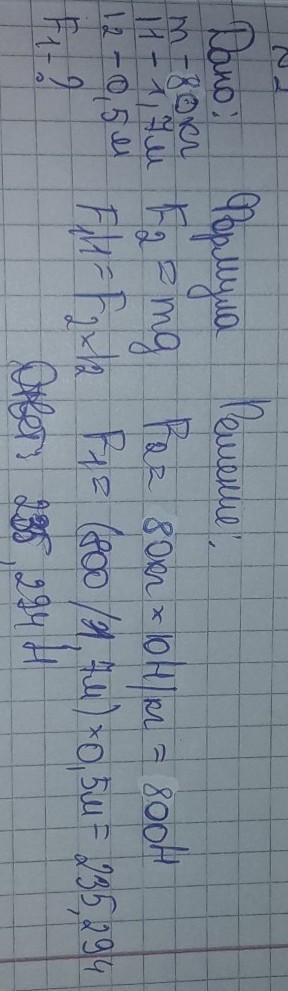 №2
Дано: Формула Решение:
m - 80кг F2 = mg F2 = 80кг × 10Н/кг = 800Н
l1 - 1,7м F1l1 = F2 × l2 F1 = (800/1,7м) × 0,5м = 235,294
l2 - 0,5м Ответ: 235,294Н
F1 - ?